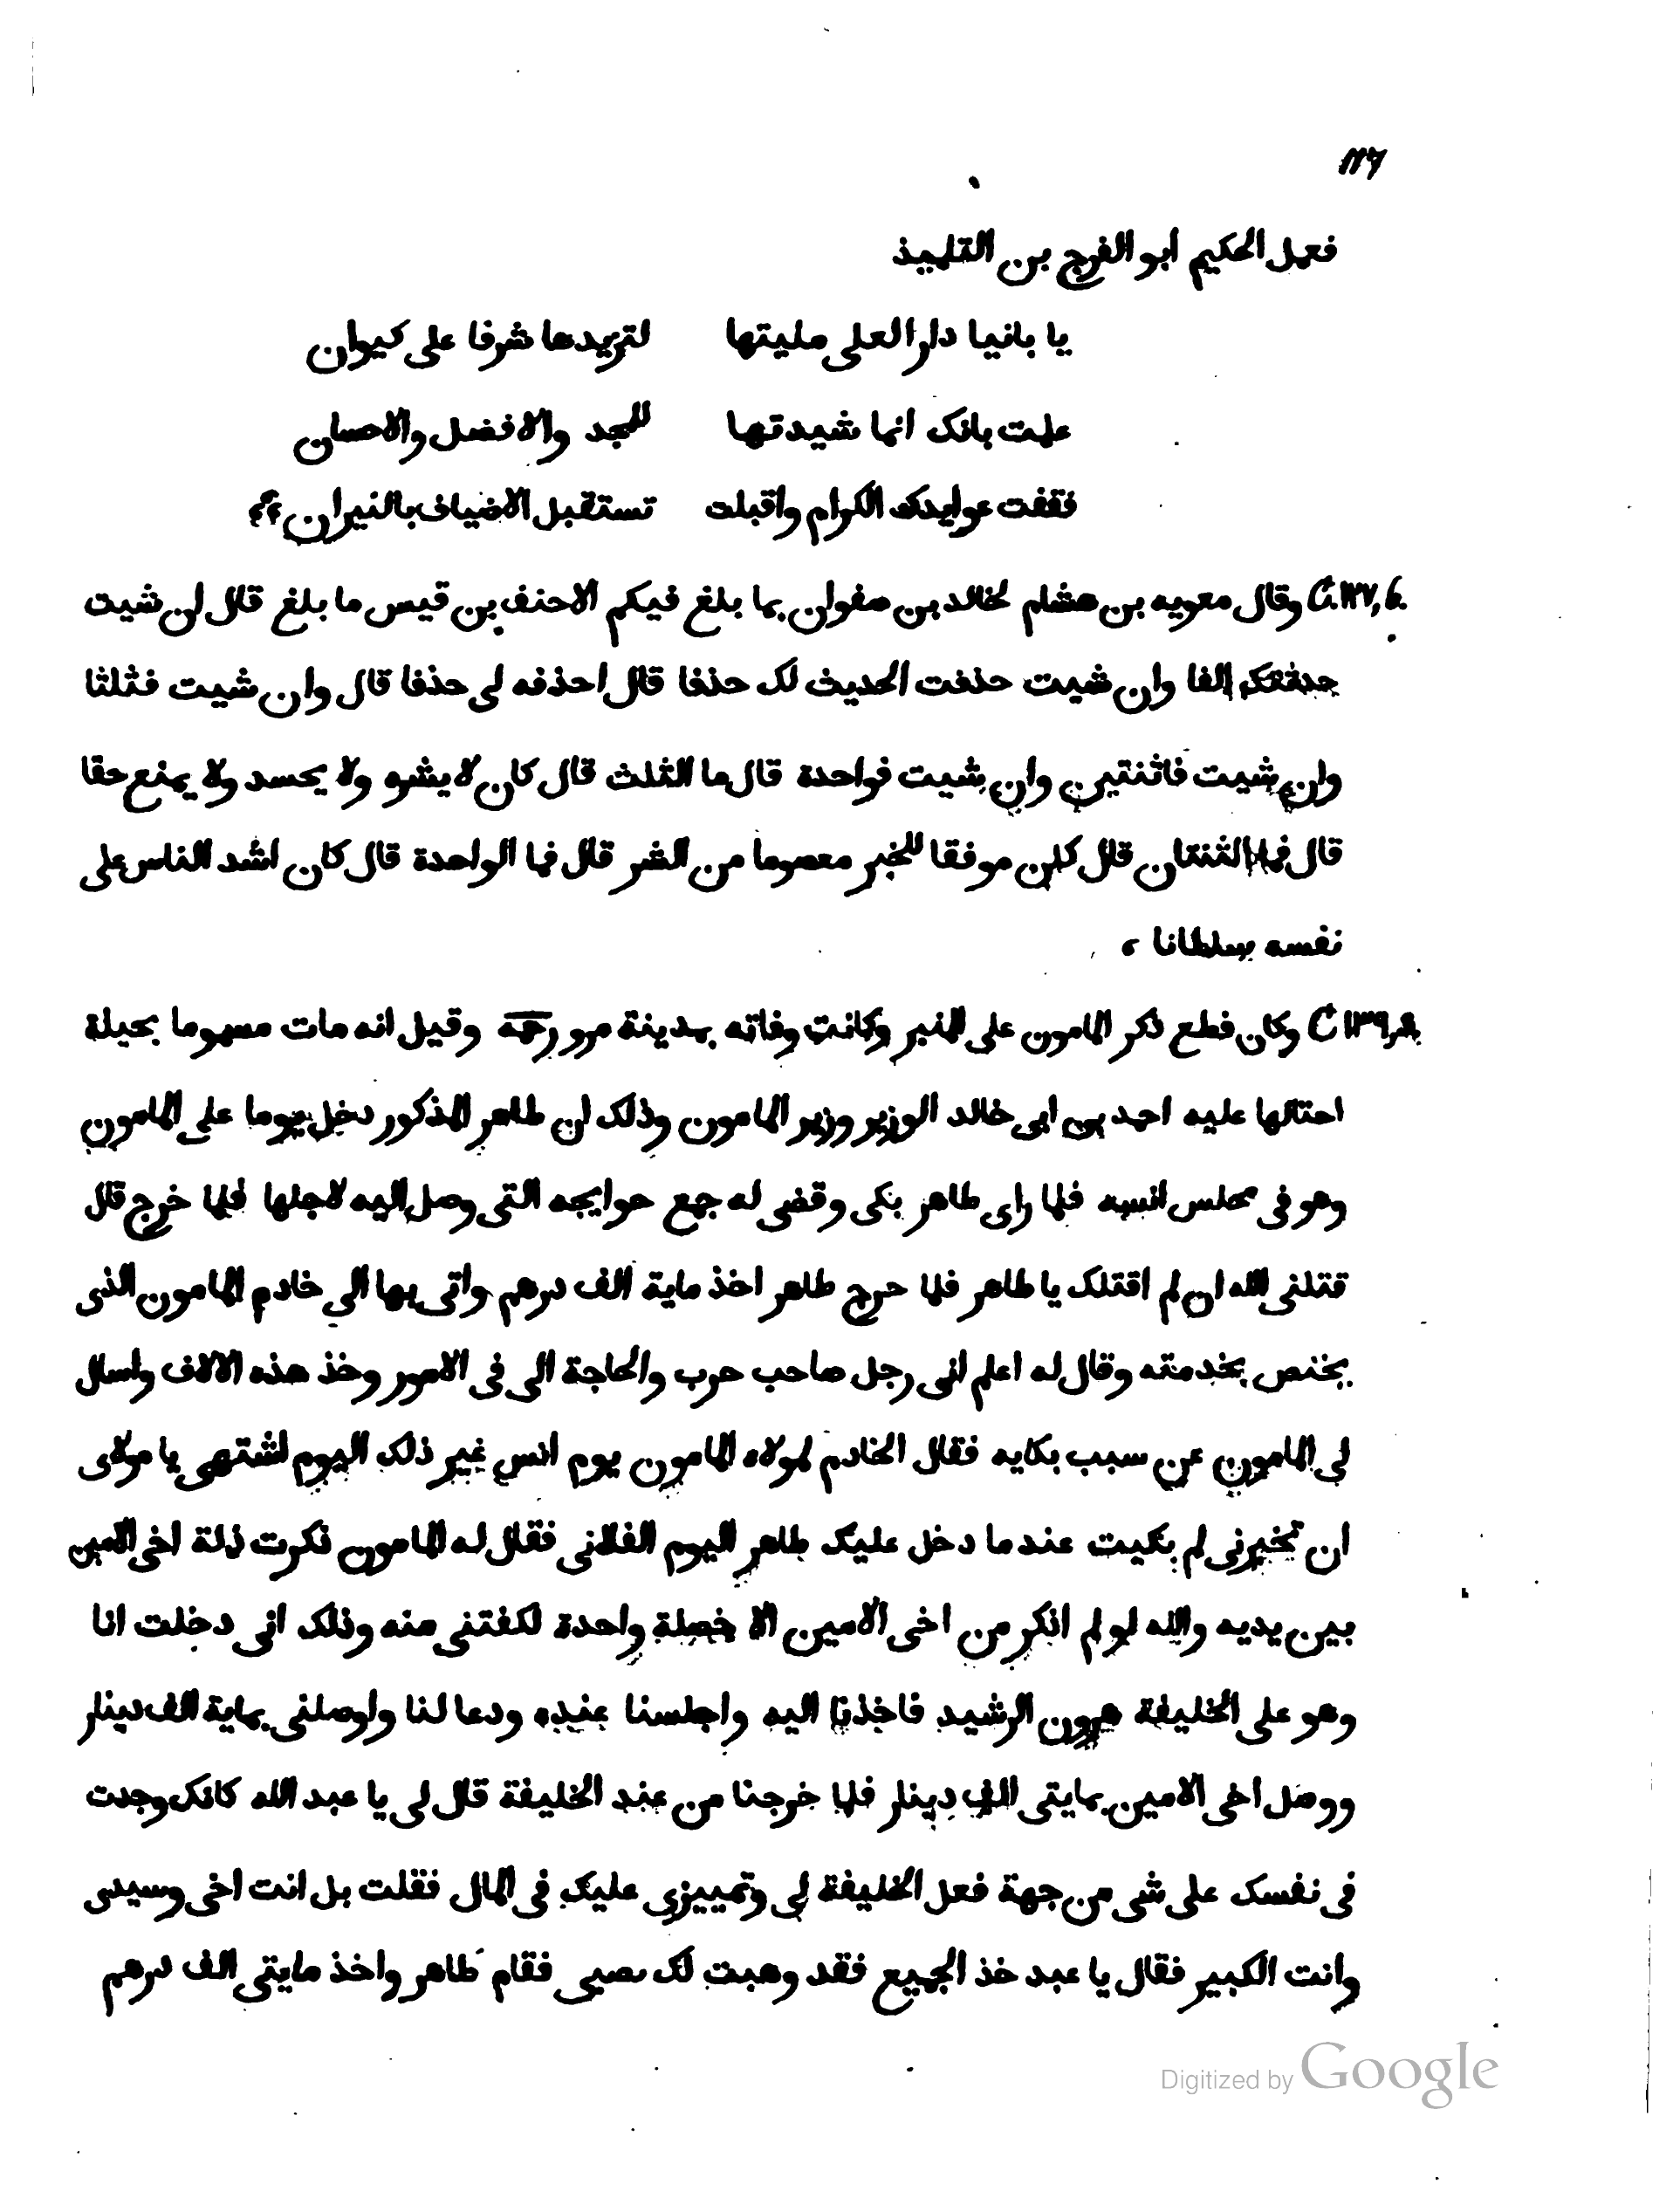 ١٢٦
فعمل الحكيم ابو الفرج بن التلميذ
يا بانيا دار العلى مليتها لتزيدها شرفا على كيوان
علمت بانك انما شيدتها للمجد والافضل والاحسان
فقفت عوايدك الكرام واقبلت تستقبل الاضياف بالنيران
C. ١٢٧, 6. وقال معويه بن هشام لخالد بن صفوان بما بلغ فيكم الاحنف بن قيس ما بلغ قال ان شيت
حدثتكم الفا وان شيت حذفت الحديث لك حذفا قال احذفه لى حذفا قال وان شيت فثلثا
وان شيت فاثنتين وان شيت فواحدة قال ما الثلث قال كان لا يشو ولا يحسد ولا يمنع حقا
قال فما الثنتان قال كان موفقا للخير معصوما من الشر قال فما الواحدة قال كان اشد الناس على
نفسه سلطانا
C ١٣٩ وكان قطع ذكر المامون على المنبر وكانت وفاته بمدينة مرو رحمه وقيل انه مات مسموما بحيلة
احتالها عليه احمد بن ابى خالد الوزير وزير المامون وذلك ان طاهر المذكور دخل يوما على المامون
وهو فى مجلس انسه فلما راى طاهر بكى وقضى له جمع حوايجه التى وصل اليه لاجلها فلما خرج قال
قتلنى الله ان لم اقتلك يا طاهر فلما حرج طاهر اخذ ماية الف درهم واتى بها الى خادم المامون الذى
يختص بخدمته وقال له اعلم انى رجل صاحب حرب والحاجة الى فى الامور وخذ هذه الالاف واسال
لى المامون عن سبب بكايه فقال الخادم لمولاه المامون يوم انس غير ذلك اليوم اشتهى يا مولاى
ان تخبرنى لم بكيت عندما دخل عليك طاهر اليوم الفلانى فقال له المامون ذكرت ذلة اخى الامين
بين يديه والله لو لم اذكر من اخى الامين الا خصلة واحدة لكفتنى منه وذلك انى دخلت انا
وهو على الخليفة هرون الرشيد فاخذنا اليه واجلسنا عنده ودعا لنا واوصلنى بماية الف دينار
ووصل اخى الامين بمايتى الف دينار فلما خرجنا من عند الخليفة قال لى يا عبد الله كانك وجدت
فى نفسك على شى من جهة فعل الخليفة لى وتمييزى عليك فى المال فقلت بل انت اخى وسيدى
وانت الكبير فقال يا عبد خذ الجميع فقد وهبت لك نصيبى فقام طاهر واخذ مايتى الف درهم
Digitized by Google